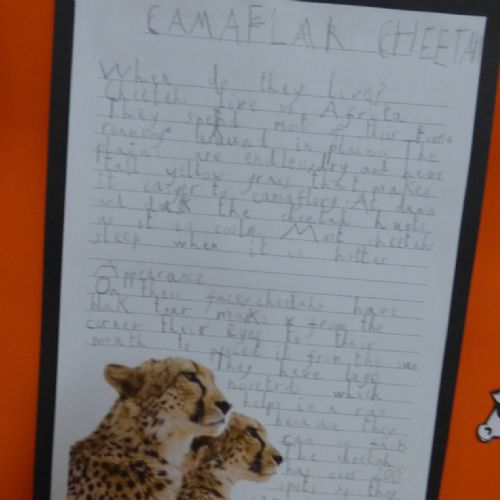 CAMAFLAR CHEETAH
When do they live?
Cheetahs live in Africa.
They spend most of their time
roaming around in plains. The
plains are endless, dry and have
tall yellow grass that makes
it easyer to camaflarg. At dawn
and dusk the cheetah hunts
as it is cooler. Most cheetahs
sleep when it is hotter.
Appearance
On their faces cheetahs have
blak tear marks from the
corner their eyes to their
mouth to from the sun.
They have large
which
helps in a run
because they
can go fast.
The cheetah
has over
spots